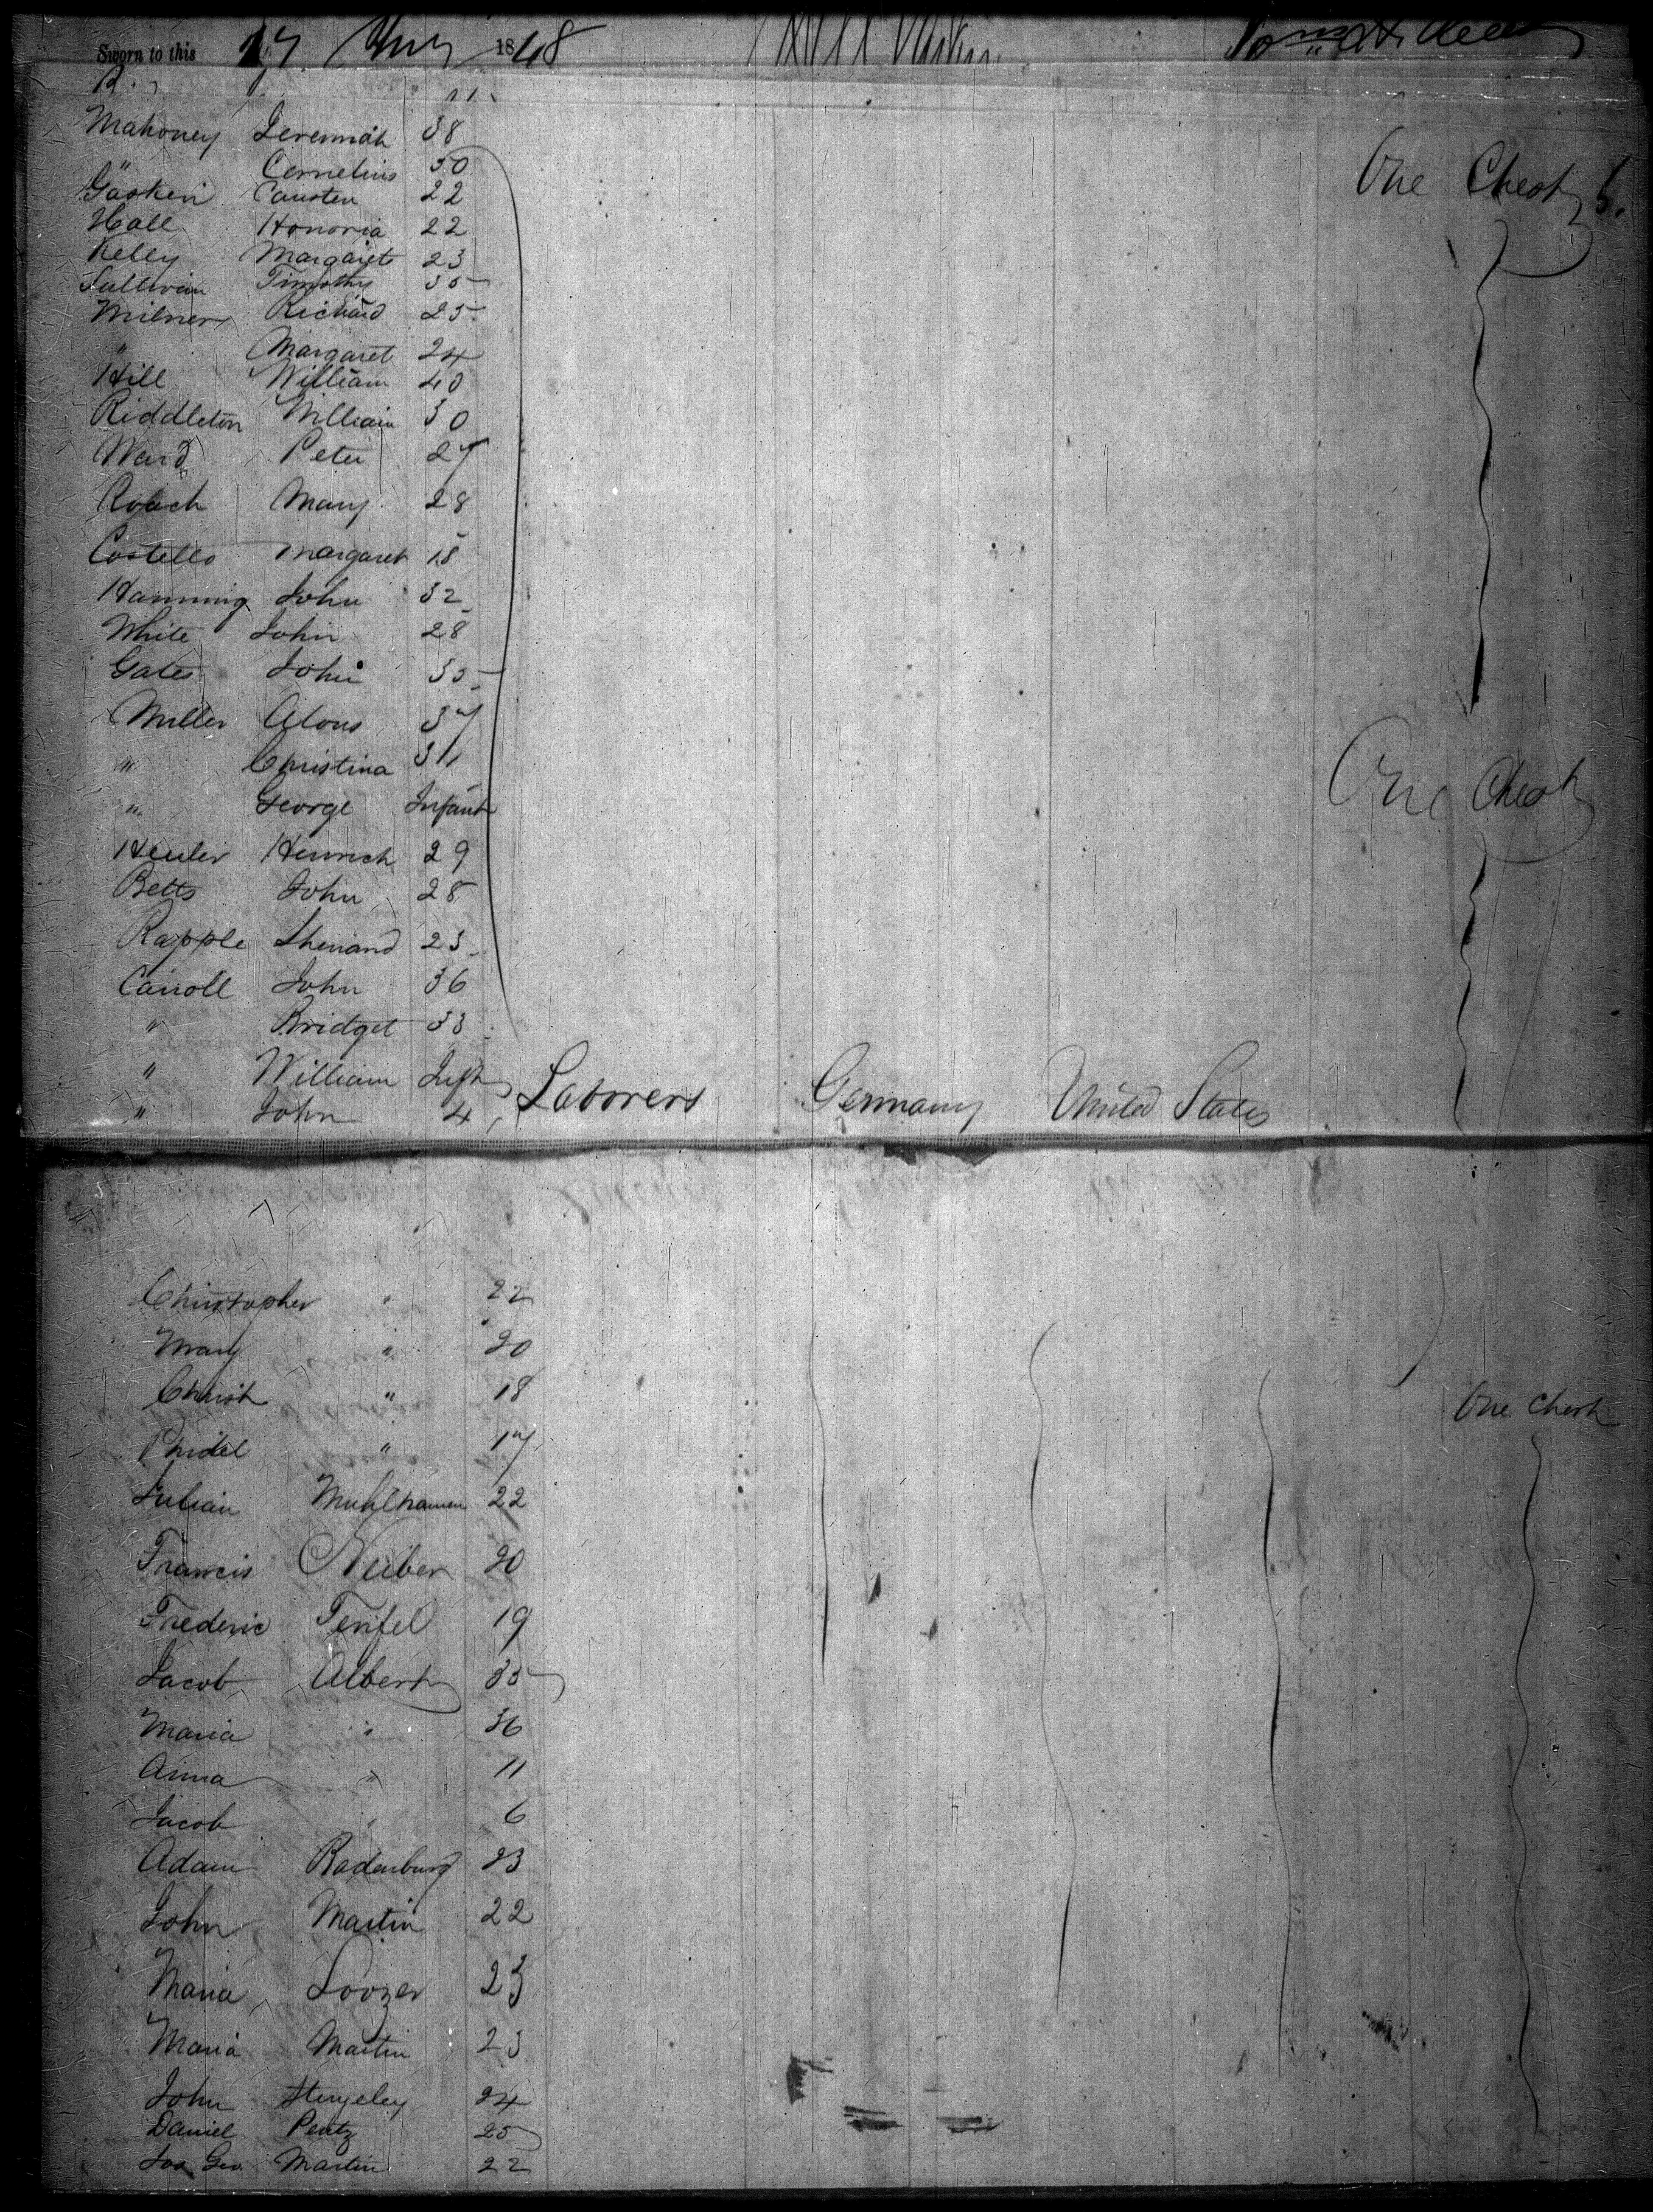 Sworn to this 17 Aug 1848
Mahoney Jeremiah 38
" Cornelius 30 One Chest
Gasken Causten 22
Hall Honoria 22
Kelly Margaret 23
Sullivan Timothy 35
Milner Richard 25
" Margaret 24
Hill William 40
Riddleton William 30
Ward Peter 27
Roach Mary 28
Costello Margaret 18
Hanning John 32
White John 28
Gates John 35
Miller Alous 37
" Christina 31
" George Infant One Chest
Heuler Heinrich 29
Betts John 28
Rapple 23
Carroll John 36
" Bridget 33
" William Inft
" John 4 Laborers Germany United States
Christopher " 22
Mary " 20
Christ " 18 One Chest
" 17
Julian Muhlhausen 22
Francis Neiber 20
Frederic Tenfel 19
Jacob Albert 35
Maria " 36
Anna " 11
Jacob " 6
Adam Radenburg 23
John Martin 22
Maria Loozer 23
Maria Martin 23
John Stengeley 24
Daniel Pentz 25
Jos Geo Martin 22